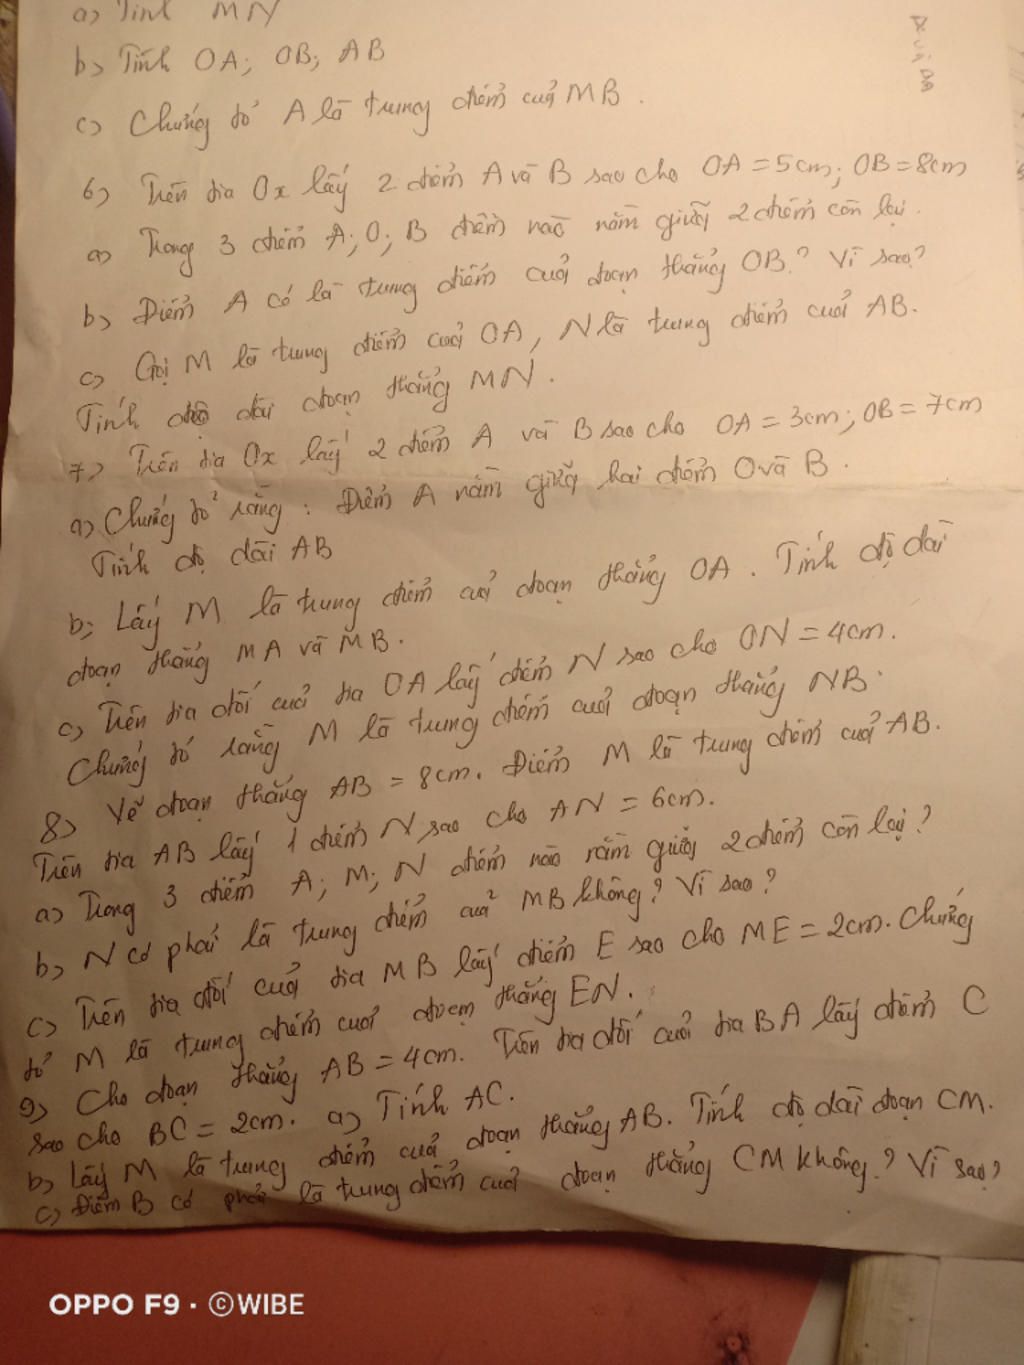 a) Tính MN
b) Tính OA; OB; AB
c) Chứng tỏ A là trung điểm cuả MB.
6) Trên tia Ox lấy 2 điểm A và B sao cho OA = 5cm; OB = 8cm
a) Trong 3 điểm A; O; B điểm nào nằm giữa 2 điểm còn lại.
b) Điểm A có là trung điểm cuả đoạn thẳng OB? Vì sao?
c) Gọi M là trung điểm cuả OA, N là trung điểm cuả AB.
Tính độ dài đoạn thẳng MN.
7) Trên tia Ox lấy 2 điểm A và B sao cho OA = 3cm; OB = 7cm
a) Chứng tỏ rằng: Điểm A nằm giữa hai điểm O và B.
Tính độ dài AB
b; Lấy M là trung điểm cuả đoạn thẳng OA. Tính độ dài
đoạn thẳng MA và MB.
c) Trên tia đối cuả tia OA lấy điểm N sao cho ON = 4cm.
Chứng tỏ rằng M là trung điểm cuả đoạn thẳng NB.
8) Vẽ đoạn thẳng AB = 8cm. Điểm M là trung điểm cuả AB.
Trên tia AB lấy 1 điểm N sao cho AN = 6cm.
a) Trong 3 điểm A; M; N điểm nào nằm giữa 2 điểm còn lại?
b) N có phải là trung điểm cuả MB không? Vì sao?
c) Trên tia đối cuả tia MB lấy điểm E sao cho ME = 2cm. Chứng
tỏ M là trung điểm cuả đoạn thẳng EN.
9) Cho đoạn thẳng AB = 4cm. Trên tia đối cuả tia BA lấy điểm C
sao cho BC = 2cm. a) Tính AC.
b) Lấy M là trung điểm cuả đoạn thẳng AB. Tính độ dài đoạn CM.
c) Điểm B có phải là trung điểm cuả đoạn thẳng CM không? Vì sao?
OPPO F9 · ©WIBE